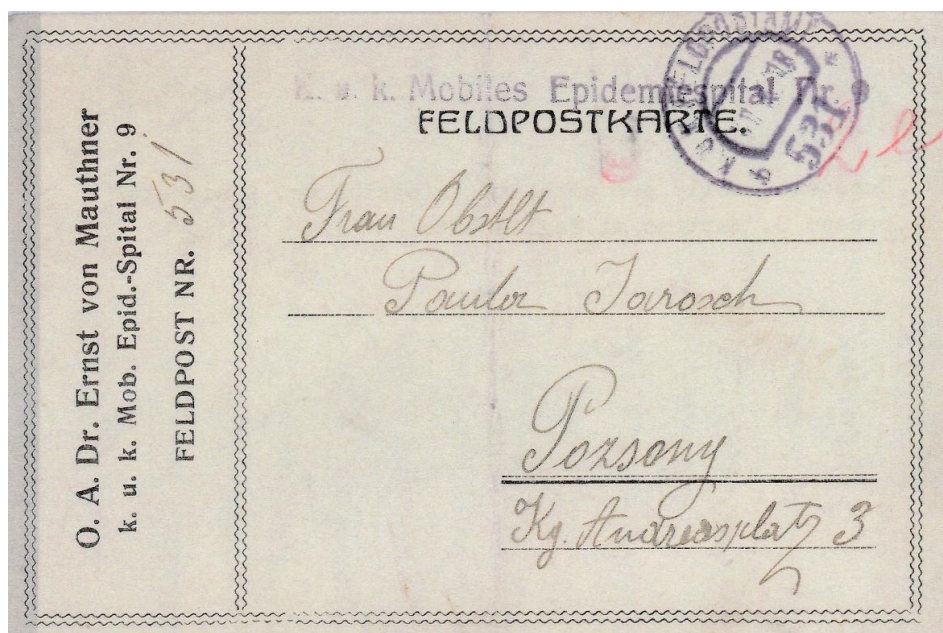 O. A. Dr. Ernst von Mauthner
k. u. k. Mob. Epid.-Spital Nr. 9
FELDPOST NR. 531
K. u. k. Mobiles Epidemiespital Nr. 9
K.u.K. FELDPOSTAMT
531
FELDPOSTKARTE.
Frau Obstlt
Paula Jarosch
Pozsony
Kg. Andreasplatz 3